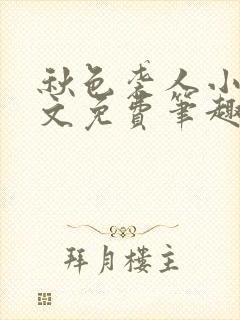 秋色袭人小
文免費筆趣
拜月樓主